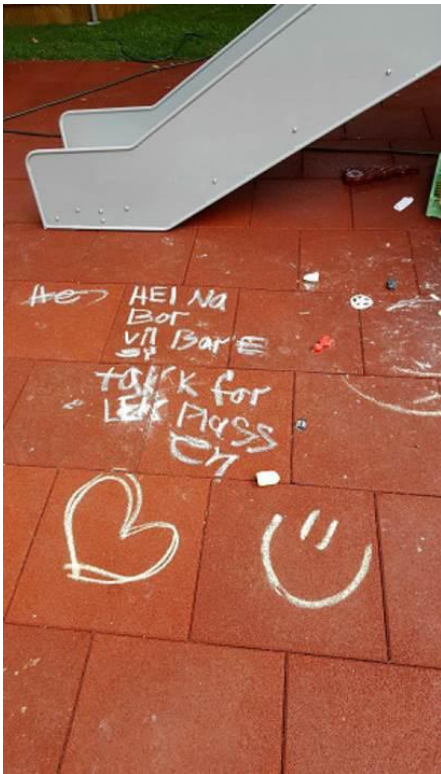 HEI Na
Bor
vil BarE
takk for
LEK Plass
en